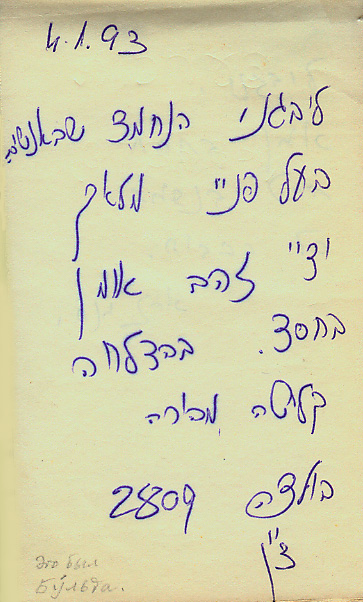 4.1.93
ליבגני הנחמד שבאנשים
בעל פניי מלאך
ידיי זהב אומן
בחסד. בהצלחה
קלישה מכירה
בולדה 2809
Это был
Бульда.